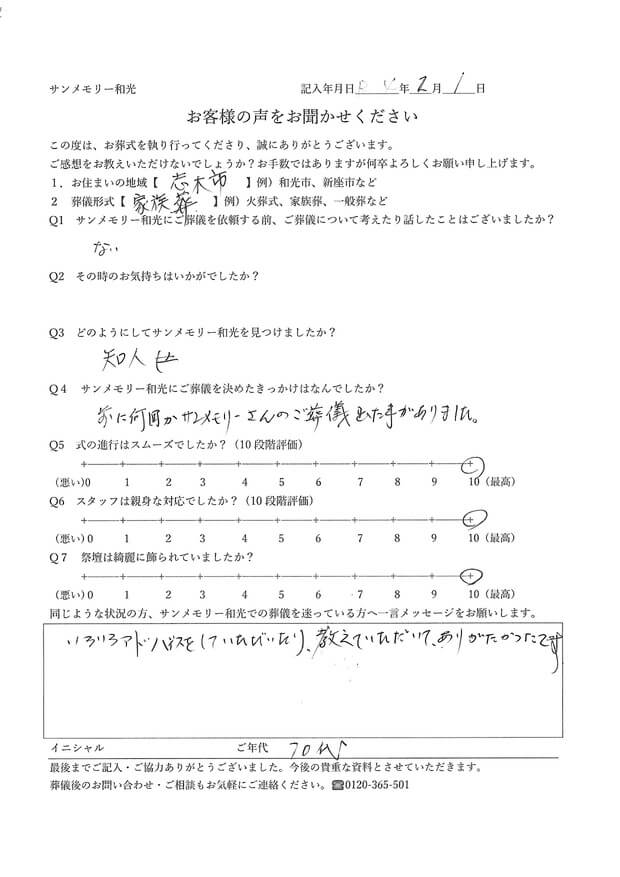 サンメモリー和光 記入年月日 年2月1日
お客様の声をお聞かせください
この度は、お葬式を執り行ってくださり、誠にありがとうございます。
ご感想をお教えいただけないでしょうか？お手数ではありますが何卒よろしくお願い申し上げます。
1．お住まいの地域【 志木市 】例）和光市、新座市など
2 葬儀形式【 家族葬 】例）火葬式、家族葬、一般葬など
Q1 サンメモリー和光にご葬儀を依頼する前、ご葬儀について考えたり話したことはございましたか？
ない
Q2 その時のお気持ちはいかがでしたか？
Q3 どのようにしてサンメモリー和光を見つけましたか？
知人
Q4 サンメモリー和光にご葬儀を決めたきっかけはなんでしたか？
前に何回かサンメモリーさんのご葬儀 た事がありました。
Q5 式の進行はスムーズでしたか？（10段階評価）
（悪い）0 1 2 3 4 5 6 7 8 9 10（最高）
Q6 スタッフは親身な対応でしたか？（10段階評価）
（悪い）0 1 2 3 4 5 6 7 8 9 10（最高）
Q7 祭壇は綺麗に飾られていましたか？
（悪い）0 1 2 3 4 5 6 7 8 9 10（最高）
同じような状況の方、サンメモリー和光での葬儀を迷っている方へ一言メッセージをお願いします。
いろいろアドバイスをしていただいたり、教えていただいて、ありがたかったです
イニシャル ご年代 70代
最後までご記入・ご協力ありがとうございました。今後の貴重な資料とさせていただきます。
葬儀後のお問い合わせ・ご相談もお気軽にご連絡ください。☎0120-365-501